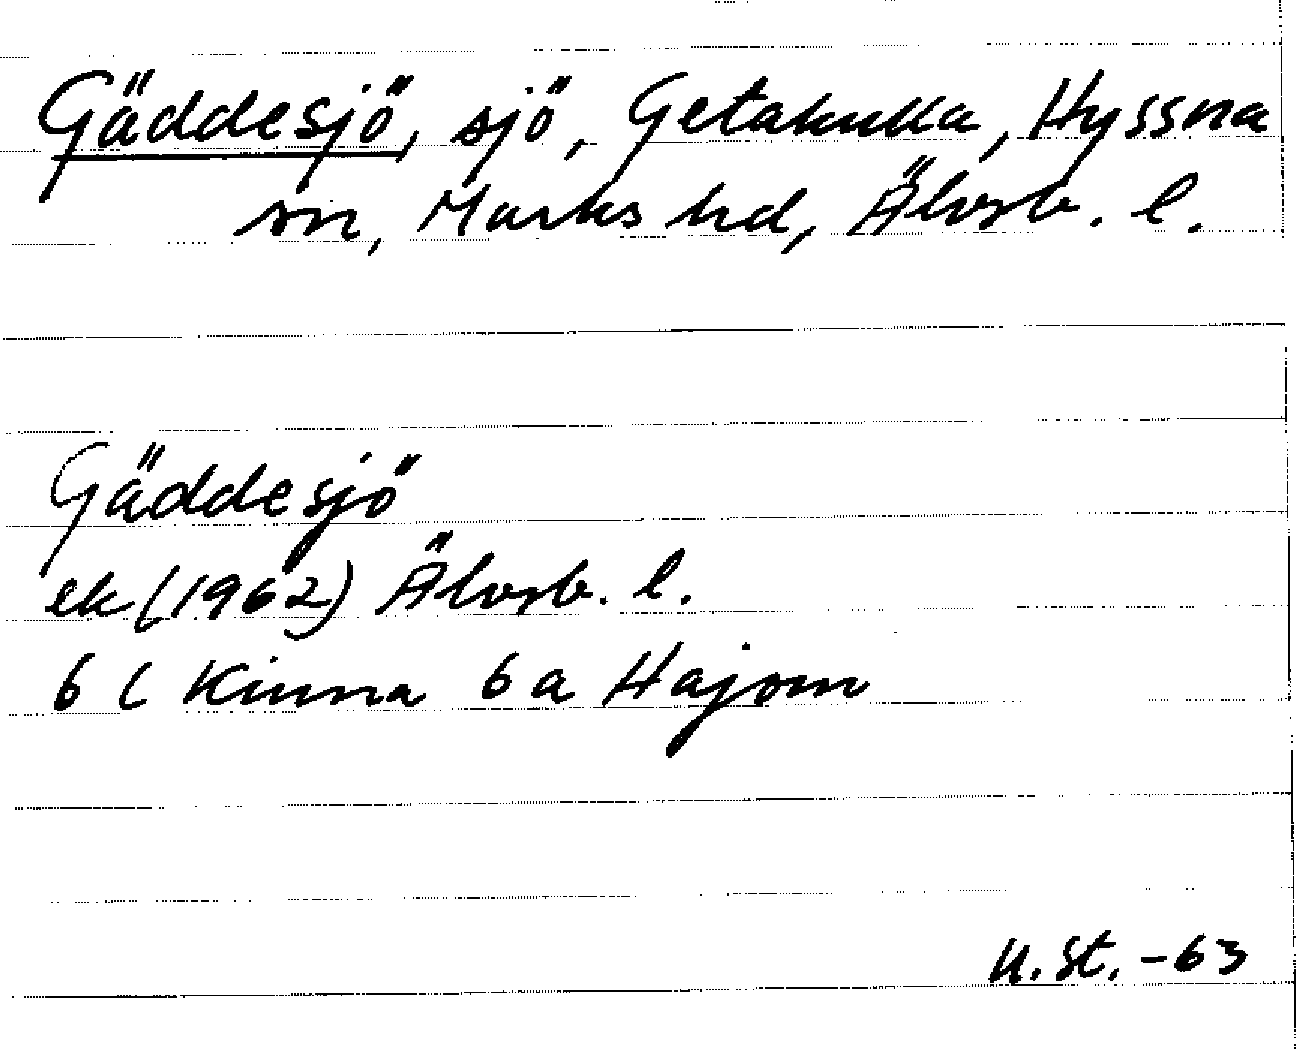 Gäddesjö, sjö, Getakulla, Hyssna
sn, Marks hd, Älvsb. l.
Gäddesjö
ek (1962) Älvsb. l.
6 C Kinna 6 a Hajom
U. St. -63